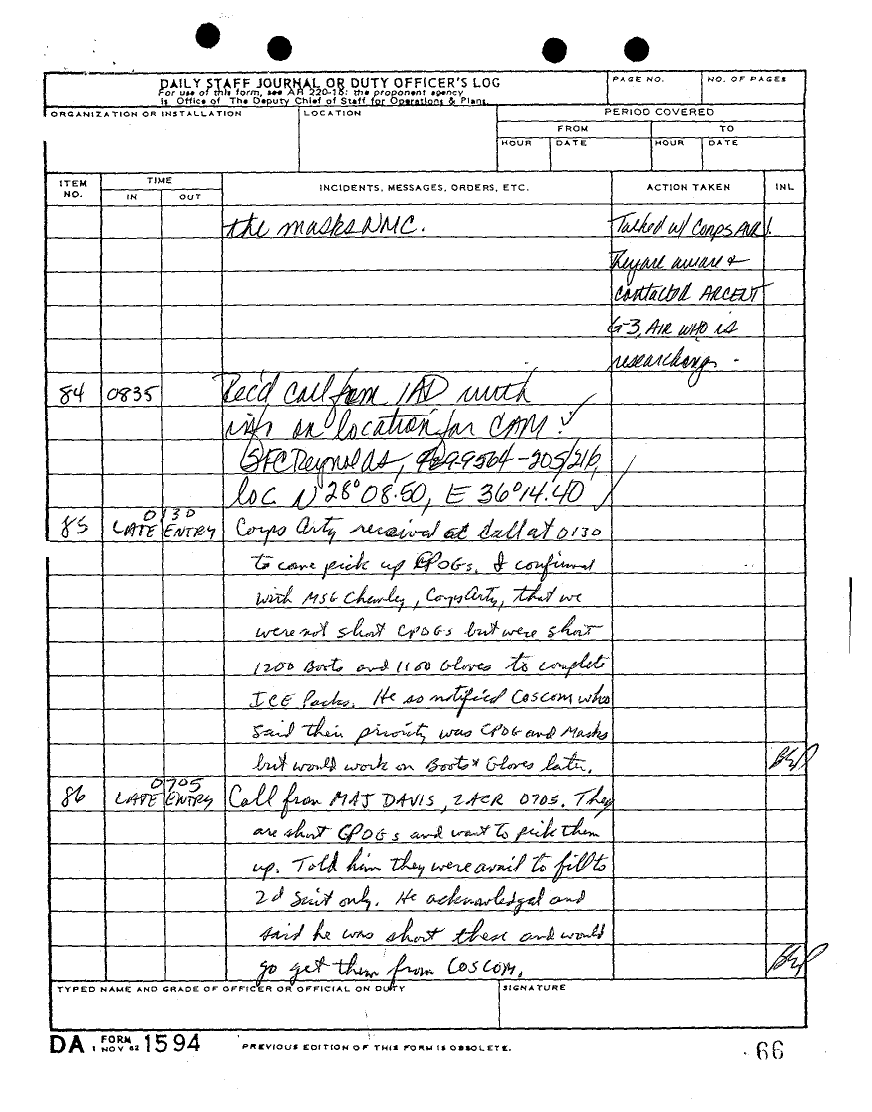 DAILY STAFF JOURNAL OR DUTY OFFICER'S LOG
For use of this form, see AR 220-15; the proponent agency
is Office of The Deputy Chief of Staff for Operations & Plans.
PAGE NO.
NO. OF PAGES
ORGANIZATION OR INSTALLATION
LOCATION
PERIOD COVERED
FROM
TO
HOUR
DATE
HOUR
DATE
ITEM NO.
TIME
IN
OUT
INCIDENTS, MESSAGES, ORDERS, ETC.
ACTION TAKEN
INL
the masks NMC.
Talked w/ Corps AVN.
They are aware &
contacted ARCENT
G-3, AIR who is
researching -
84 0835 Rec'd call from 1AD with
info on location for CAM.
SFC Reynolds, 9564-205/216,
loc N 28° 08.50, E 36° 14.40
85 0130
LATE ENTRY Corps Arty received at call at 0130
to come pick up CPOGs. I confirmed
with MSG, Corps Arty, that we
were not short CPOGs but were short
1200 Boots and 1100 Gloves to complete
ICE Packs. He so notified COSCOM who
said their priority was CPOG and Masks
but would work on Boots & Gloves later.
86 0705
LATE ENTRY Call from MAJ DAVIS, 2ACR 0705. They
are short CPOGs and want to pick them
up. Told him they were avail to fill to
2d Suit only. He acknowledged and
said he was short these and would
go get them from COSCOM.
TYPED NAME AND GRADE OF OFFICER OR OFFICIAL ON DUTY
SIGNATURE
DA FORM 1 NOV 62 1594
PREVIOUS EDITION OF THIS FORM IS OBSOLETE.
66